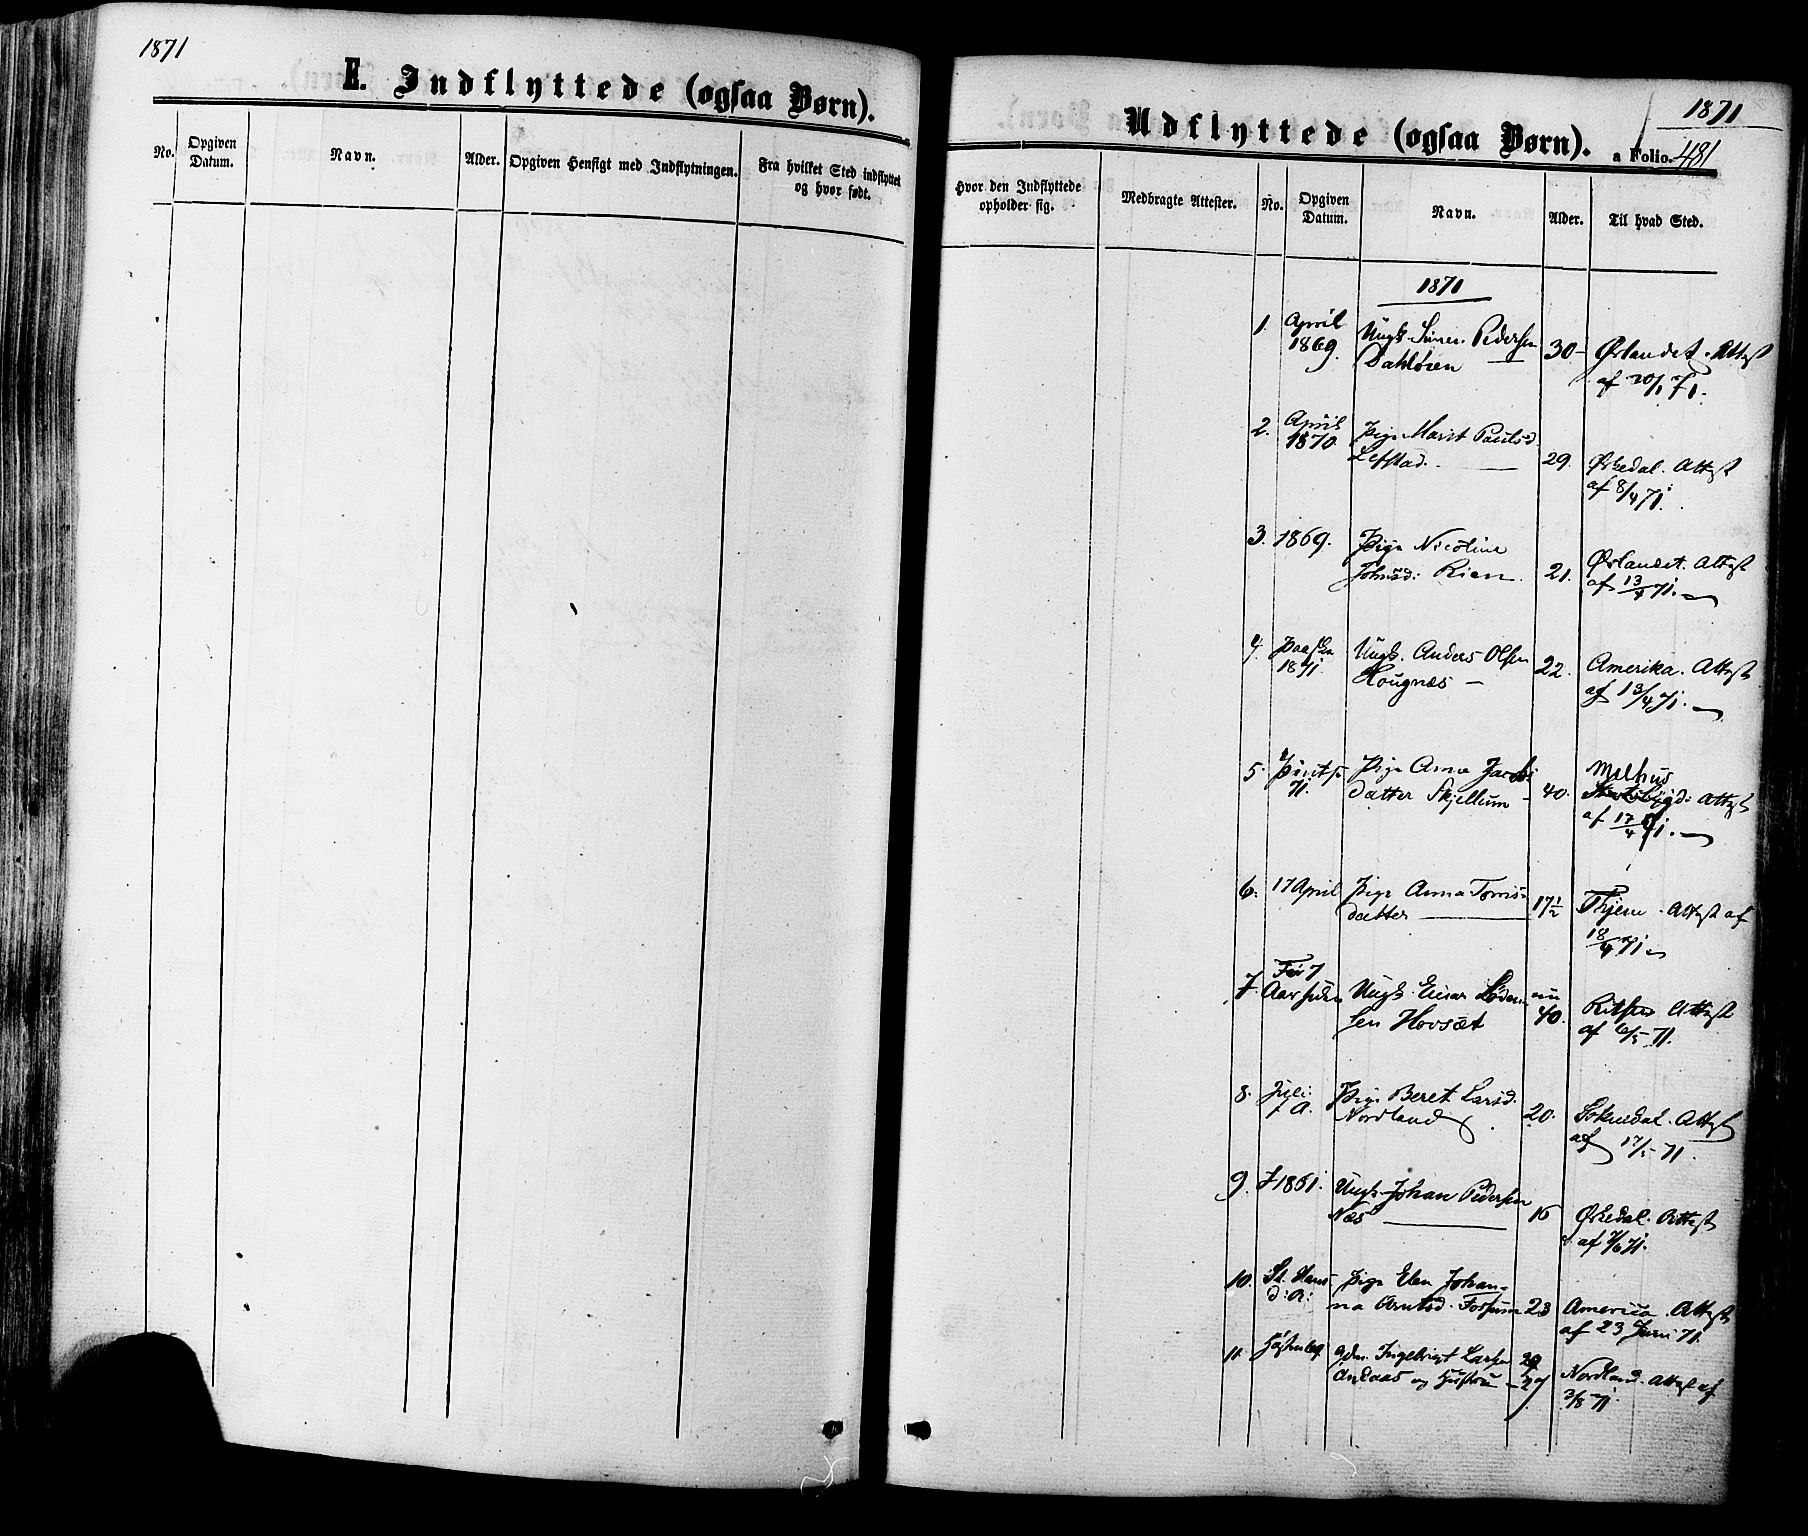 1871
E. Indflyttede (ogsaa Børn).
No.
Opgiven
Datum.
Navn.
Alder.
Opgiven Hensigt med Indflytningen.
Fra hvilket Sted indflyttet
og hvor født.
1871
Udflyttede (ogsaa Børn).
a Folio. 481
Hvor den Indflyttede
opholder sig.
Medbragte Attester.
No.
Opgiven
Datum.
Navn.
Alder.
Til hvad Sted.
1871
1. April Ungk. Pedersen 30 Ørlandet. Attest
1869.
af 20/1 71.
2. April Pige Marit Paulsd.
1870 Lefstad. 29. Ørkedal. Attest
af 8/4 71.
3. 1869. Pige Nicoline
Johnsd: Rien. 21. Ørlandet. Attest
af 13/4 71.
4. Paaske Ungk. Anders Olsen
1871. Hougnæs 22. Amerika. Attest
af 13/4 71.
5. Pintse Pige Anne Jacobs
71. datter Skjellum 40. Melhus
Attest
af 17/4 71.
6. 17 April Pige Anna
datter 17½ Attest af
18/4 71.
7. For 7
Aar siden Ungk. Einar
sen Hovsæt 40. Attest
af 6/5 71.
8. Juli Pige Beret Larsd.
f A. Nordland 20. Soknedal. Attest
af 17/5 71.
9. 1861. Ungk. Johan Pedersen
Næs 16 Ørkedal. Attest
af 7/6 71.
10. St. Hans Pige Elen Johan-
d: A: na Arntsd. Forsum 23 America. Attest
af 23 Juni 71.
11. Høsten 69 Gdm. Ingebrigt Larsen 29
og Hustru 27 Nordland. Attest af
2/8 71.